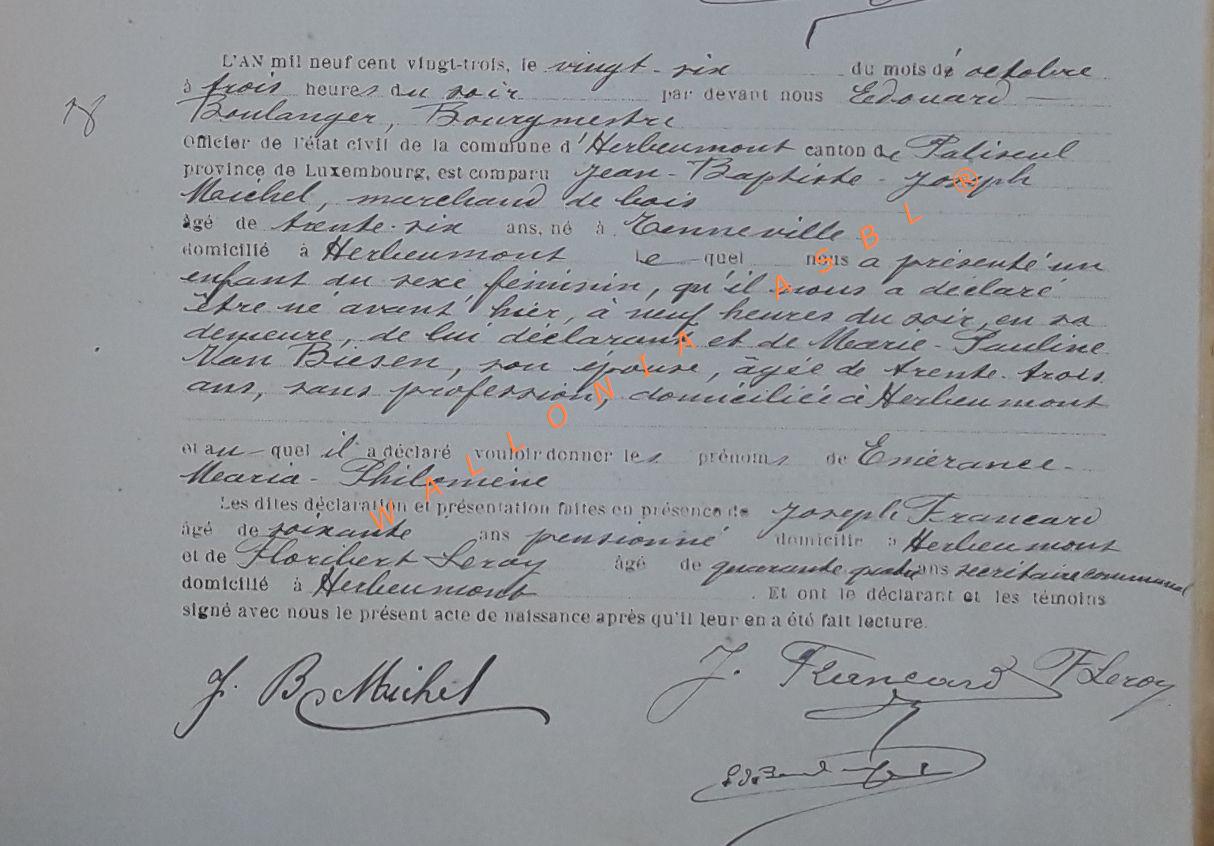 L'AN mil neuf cent vingt-trois, le vingt-six du mois de octobre
à trois heures du soir par devant nous Edouard —
Boulanger, Bourgmestre
Officier de l'état civil de la commune d'Herbeumont canton de Paliseul
province de Luxembourg, est comparu Jean-Baptiste-Joseph
Michel, marchand de bois
âgé de trente-six ans, né à Tenneville
domicilié à Herbeumont le quel nous a présenté un
enfant du sexe féminin, qu'il nous a déclaré
être né avant hier, à neuf heures du soir, en sa
demeure, de lui déclarant et de Marie-Pauline
Van Biesen, son épouse, âgée de trente-trois
ans, sans profession, domiciliée à Herbeumont
et au quel il a déclaré vouloir donner les prénoms de Emérance-
Maria-Philomène
Les dites déclaration et présentation faites en présence de Joseph Francard
âgé de soixante ans pensionné domicilié à Herbeumont
et de Floribert Leroy âgé de quarante quatre ans secrétaire communal
domicilié à Herbeumont. Et ont le déclarant et les témoins
signé avec nous le présent acte de naissance après qu'il leur en a été fait lecture.
J. B. Michel J. Francard F Leroy
WALLONIA ASBL ®